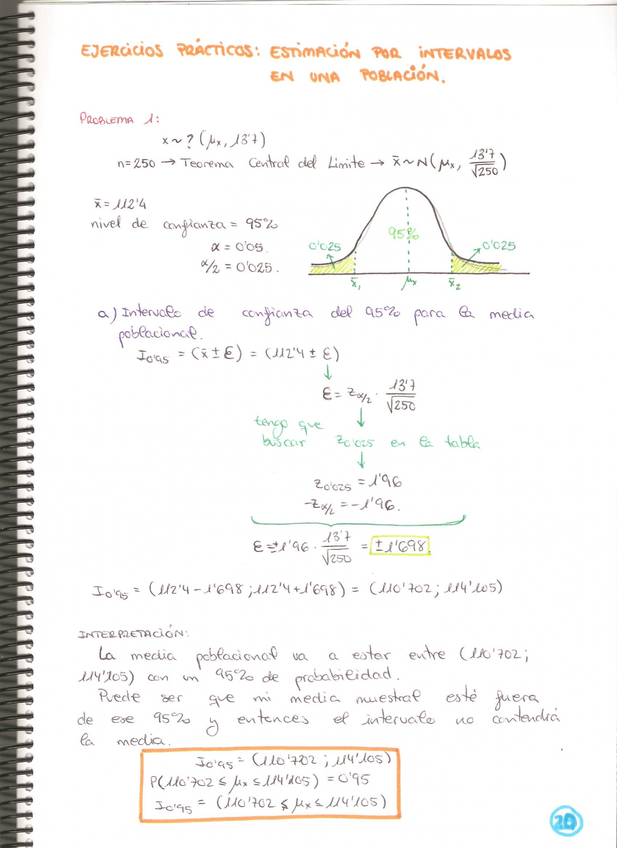 EJERCICIOS PRÁCTICOS: ESTIMACIÓN POR INTERVALOS
EN UNA POBLACIÓN.
PROBLEMA 1:
x ~ ? (μx, 13'7)
n=250 → Teorema Central del Límite → x̄ ~ N(μx, 13'7/√250)
x̄ = 112'4
nivel de confianza = 95%
α = 0'05.
α/2 = 0'025.
0'025 95% 0'025
x̄1 μx x̄2
a) Intervalo de confianza del 95% para la media
poblacional.
I0'95 = (x̄ ± ε) = (112'4 ± ε)
↓
ε = zα/2 · 13'7/√250
tengo que ↓
buscar z0'025 en la tabla
↓
z0'025 = 1'96
-zα/2 = -1'96.
ε = ±1'96 · 13'7/√250 = ±1'698
I0'95 = (112'4 - 1'698 ; 112'4 + 1'698) = (110'702 ; 114'105)
INTERPRETACIÓN:
La media poblacional va a estar entre (110'702 ;
114'105) con un 95% de probabilidad.
Puede ser que mi media muestral esté fuera
de ese 95% y entonces el intervalo no contendrá
la media.
I0'95 = (110'702 ; 114'105)
P(110'702 ≤ μx ≤ 114'105) = 0'95
I0'95 = (110'702 ≤ μx ≤ 114'105)
20